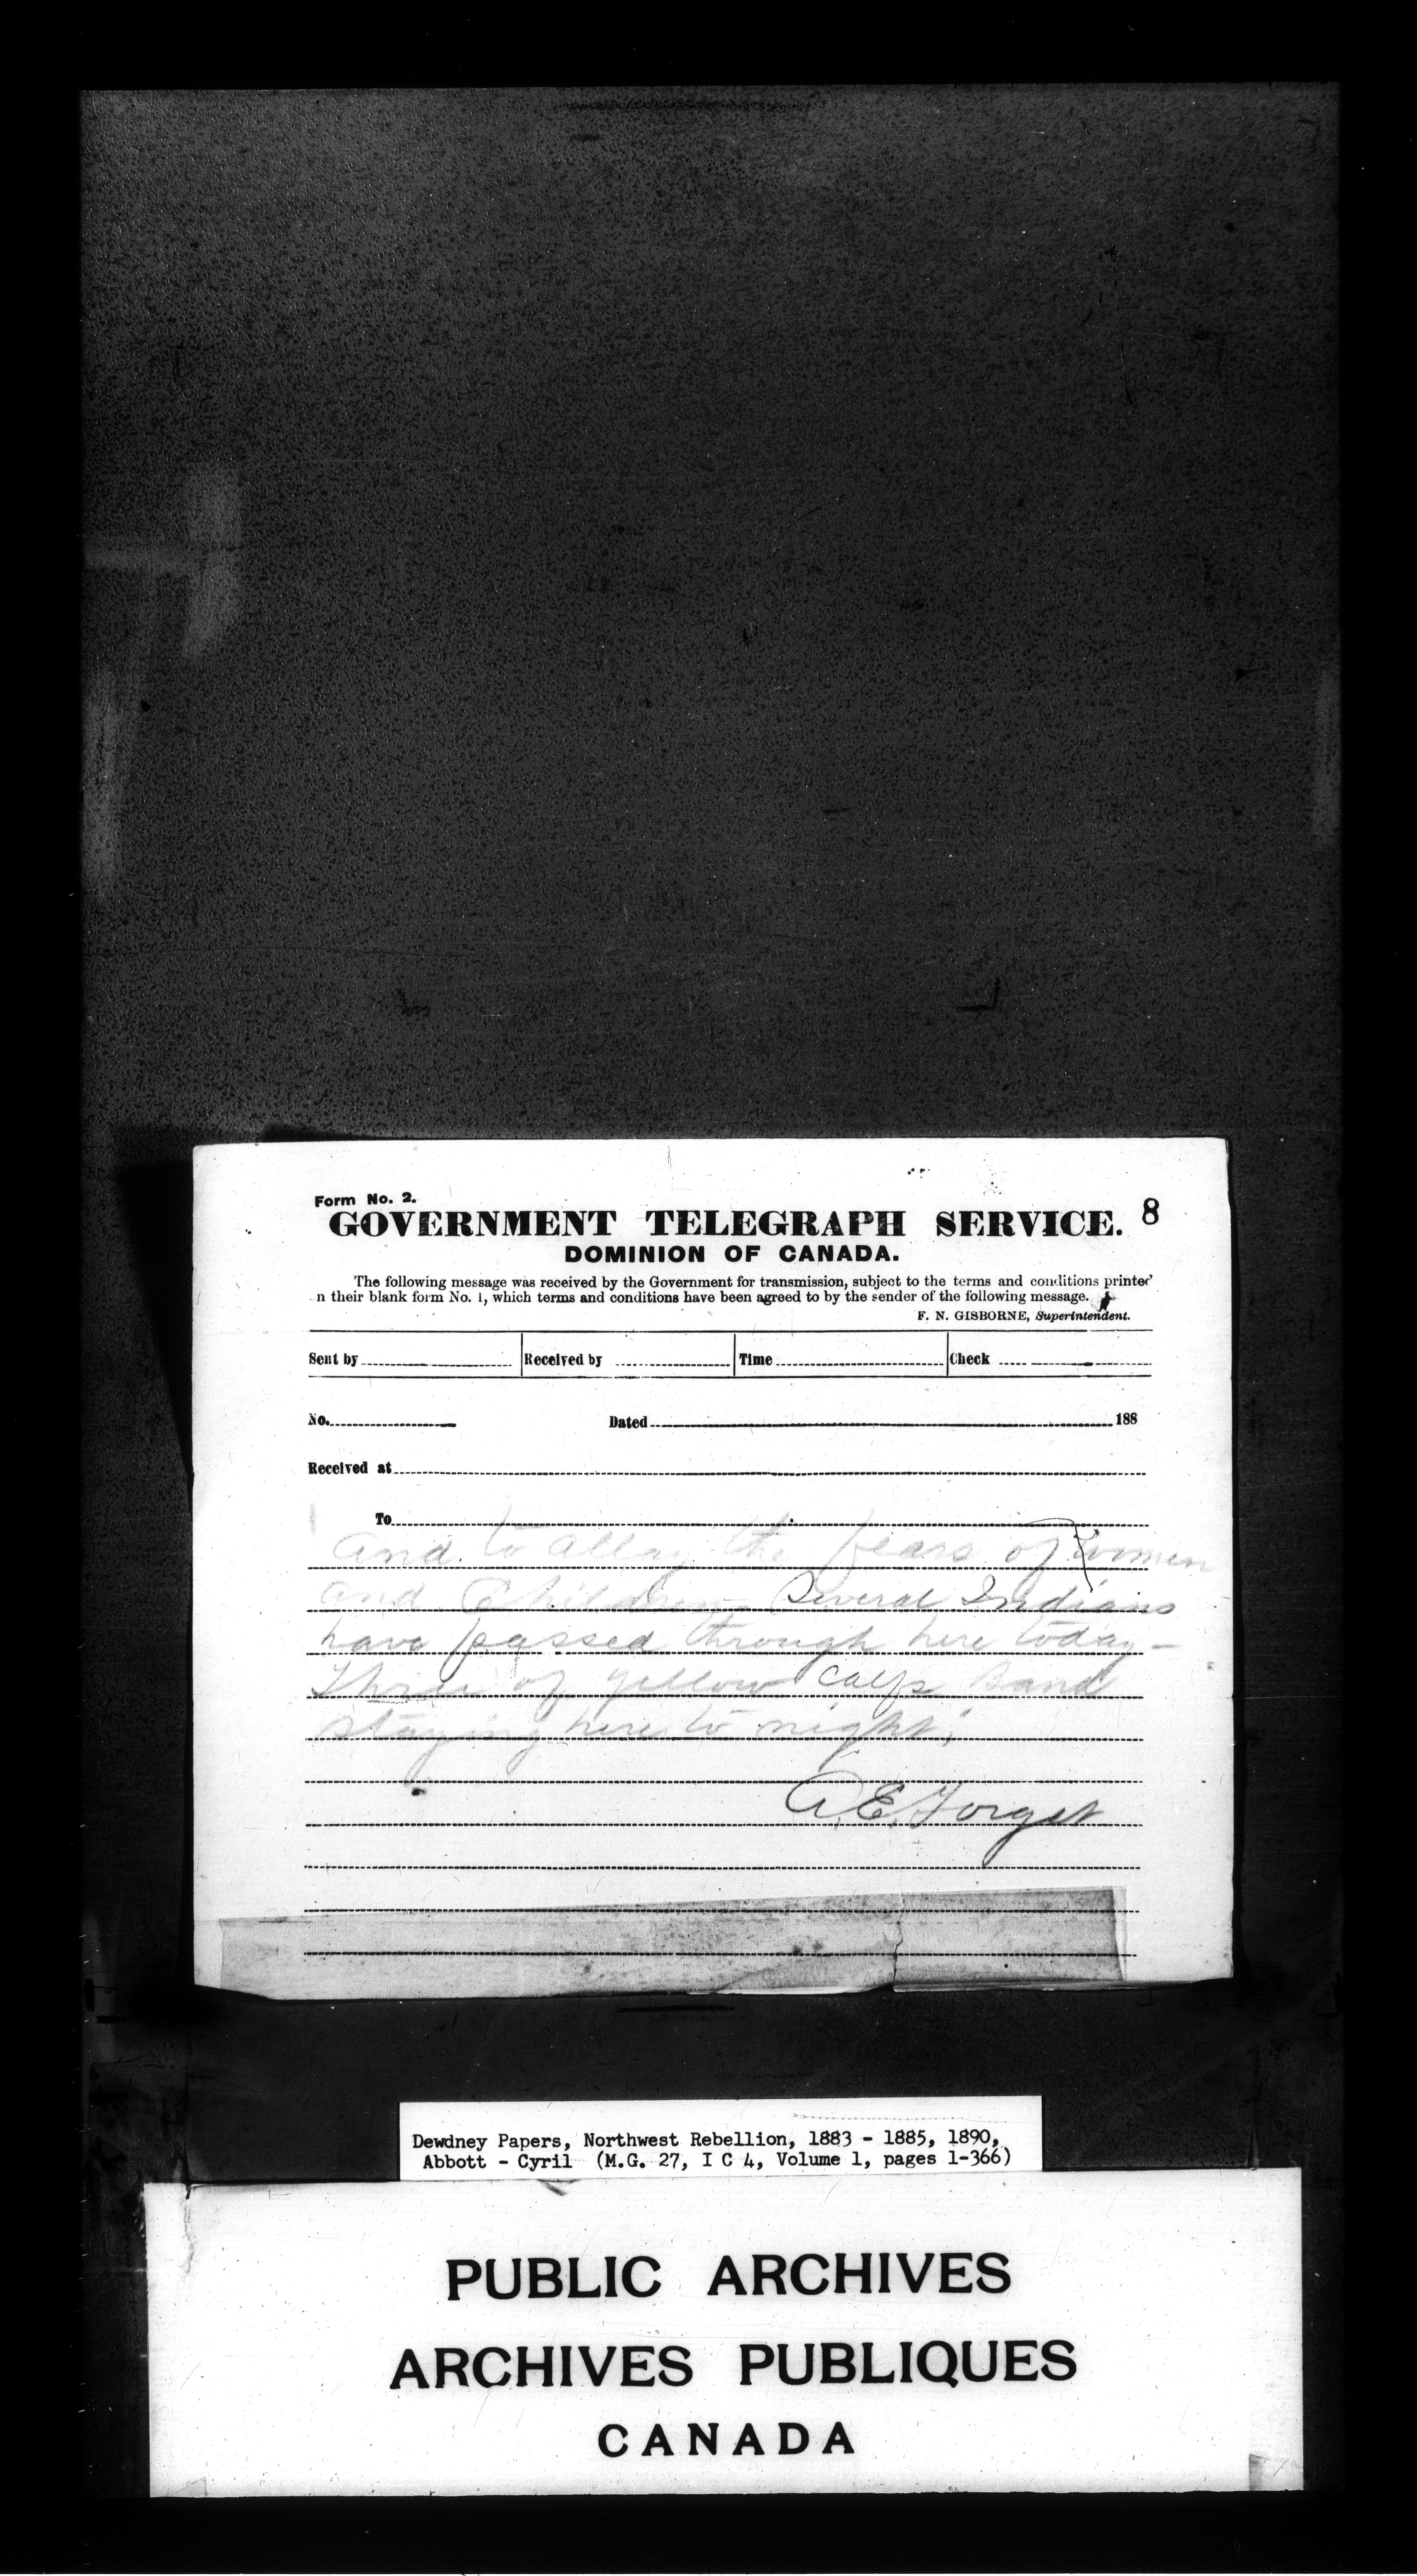 Form No. 2.
GOVERNMENT TELEGRAPH SERVICE. 8
DOMINION OF CANADA.
The following message was received by the Government for transmission, subject to the terms and conditions printed
n their blank form No. 1, which terms and conditions have been agreed to by the sender of the following message.
F. N. GISBORNE, Superintendent.
Sent by Received by Time Check
No. Dated 188
Received at
To
and to allay the fears of women
and Children Several Indians
have passed through here today -
Three of yellow calfs Band
staying here to night
A. E. Forget
Dewdney Papers, Northwest Rebellion, 1883 - 1885, 1890,
Abbott - Cyril (M.G. 27, I C 4, Volume 1, pages 1-366)
PUBLIC ARCHIVES
ARCHIVES PUBLIQUES
CANADA